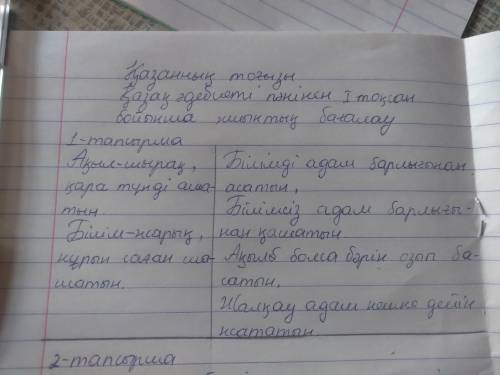 Қазанның тоғызы
Қазақ әдебиеті пәнінен I тоқсан
бойынша жиынтық бағалау
1-тапсырма
Ақыл-шырақ,
қара түнді аша-
тын.
Білім-жарық,
нұрын саған ша-
шатын.
Білімді адам барлығынан
асатын,
Білімсіз адам барлығы-
нан қашатын.
Ақылы болма бәрін озып ба-
сатын,
Жалқау адам кешке дейін
жататын.
2-тапсырма